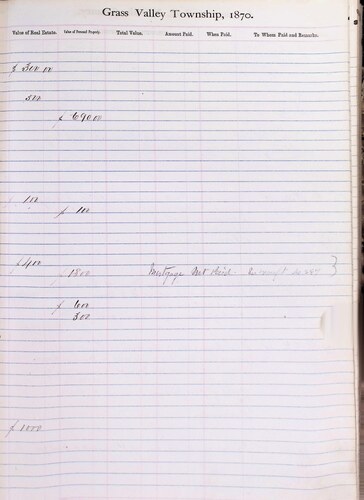 Grass Valley Township, 1870.
Value of Real Estate. Value of Personal Property. Total Value. Amount Paid. When Paid. To Whom Paid and Remarks.
$ 300 00
500
$ 690 00
100
$ 100
$ 400
$ 1800 Mortgage Not
$ 600
300
$ 1000